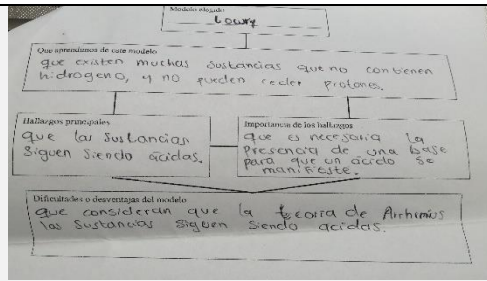 Modelo elegido
Lowry
Que aprendimos de este modelo
que existen muchas sustancias que no contienen
hidrogeno, y no pueden ceder protones.
Hallazgos principales
que las sustancias
siguen siendo ácidas.
Importancia de los hallazgos
que es necesaria la
presencia de una base
para que un ácido se
manifieste.
Dificultades o desventajas del modelo
que consideran que la teoria de Arrhinius
las sustancias siguen siendo acidas.